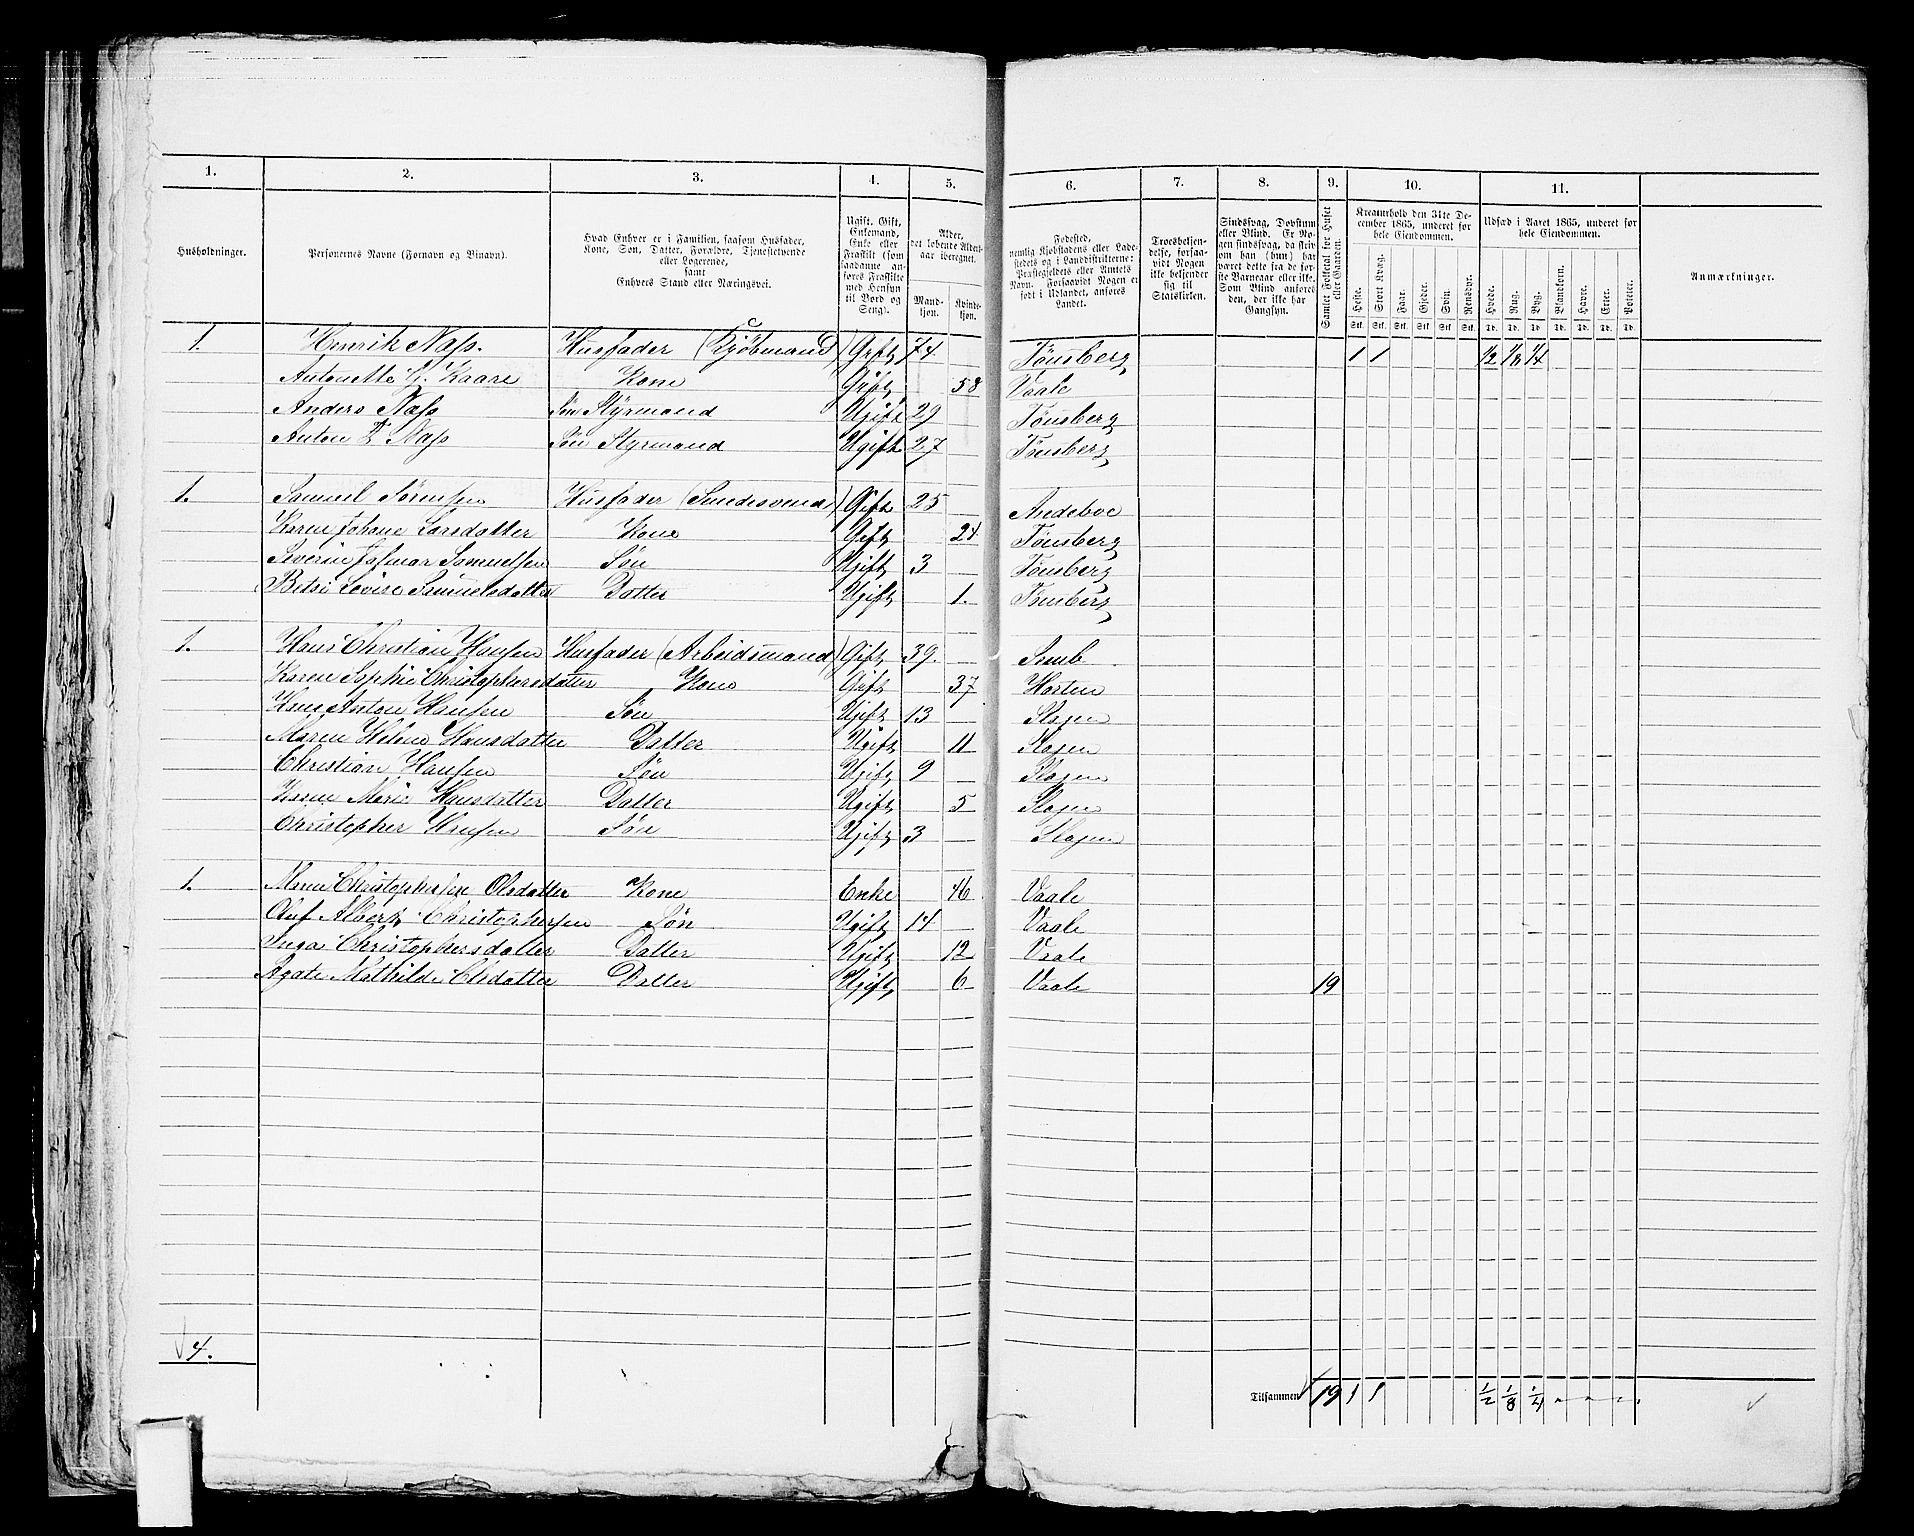 1. 2. 3. 4. 5. 6. 7. 8. 9. 10. 11.
Husholdninger.
Personernes Navne (Fornavn og Tilnavn).
Hvad Enhver er i Familien, saasom Husfader,
Kone, Søn, Datter, Forældre, Tjenestetyende
eller Logerende,
samt
Enhvers Stand eller Næringsvei.
Ugift, Gift,
Enkemand,
Enke eller
Fraskilt (som
saadanne an-
føres Fraskilte
med Hensyn
til Bord og
Seng).
Alder,
det løbende Alders-
aar iberegnet.
Mand-
kjøn.
Kvinde-
kjøn.
Fødested,
nemlig Kjøbstadens eller Lade-
stedets og i Landdistrikterne:
Præstegjeldets eller Amtets
Navn. Forsaavidt Nogen er
født i Udlandet, anføres
Landet.
Troesbekjen-
delse, forsaa-
vidt Nogen
ikke bekjender
sig til
Statskirken.
Sindssvag, Døvstum
eller Blind. Er No-
gen sindssvag, da skriv
om han (hun) har
været dette fra de før-
ste Barneaar eller ikke.
Som Blind anføres
den, der ikke har
Gangsyn.
Samlet Folketal for Huset
eller Gaarden.
Kreaturhold den 31te De-
cember 1865, underet for
hele Eiendommen.
Heste. Stort Kvæg. Faar. Gjeder. Svin. Rensdyr.
Stk. Stk. Stk. Stk. Stk. Stk.
Udsæd i Aaret 1865, underet for
hele Eiendommen.
Hvede. Rug. Byg. Blandkorn. Havre. Erter. Poteter.
Td. Td. Td. Td. Td. Td. Td.
Anmærkninger.
1. Henrik Nass. Husfader (Kjöbmand) Gift 74. Tönsberg 1 1 1/2 1/8 1/4
Antonette G. Kaare Kone Gift 58 Vaale
Anders Nass Sön Styrmand Ugift 29 Tönsberg
Anton T Nass Sön Styrmand Ugift 27 Tönsberg
1. Samuel Sörensen Husfader (Smedesvend) Gift 25 Andeboe
Karen Johane Larsdatter Kone Gift 24 Tönsberg
Severin Jalmar Samuelsen Sön Ugift 3 Tönsberg
Betsi Lovise Samuelsdatter Datter Ugift 1. Tönsberg
1. Hans Christian Hansen Husfader (Arbeidsmand) Gift 39. Semb
Karen Sophie Christophersdatter Kone Gift 37 Horten
Hans Anton Hansen Sön Ugift 13 Slagen
Maren Helene Hansdatter Datter Ugift 11 Slagen
Christian Hansen Sön Ugift 9 Slagen
Karen Marie Hansdatter Datter Ugift 5 Slagen
Christopher Hansen Sön Ugift 3 Slagen
1. Maren Christophersen Olsdatter Kone Enke 46 Vaale
Oluf Albert Christophersen Sön Ugift 14 Vaale
Inga Christophersdatter Datter Ugift 12 Vaale
Agate Mathilde Olsdatter Datter Ugift 6 Vaale 19
4.
Tilsammen 19 1 1 1/2 1/8 1/4